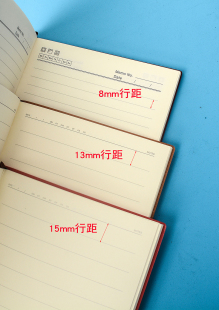 Memo No.
Date
8mm行距
13mm行距
15mm行距